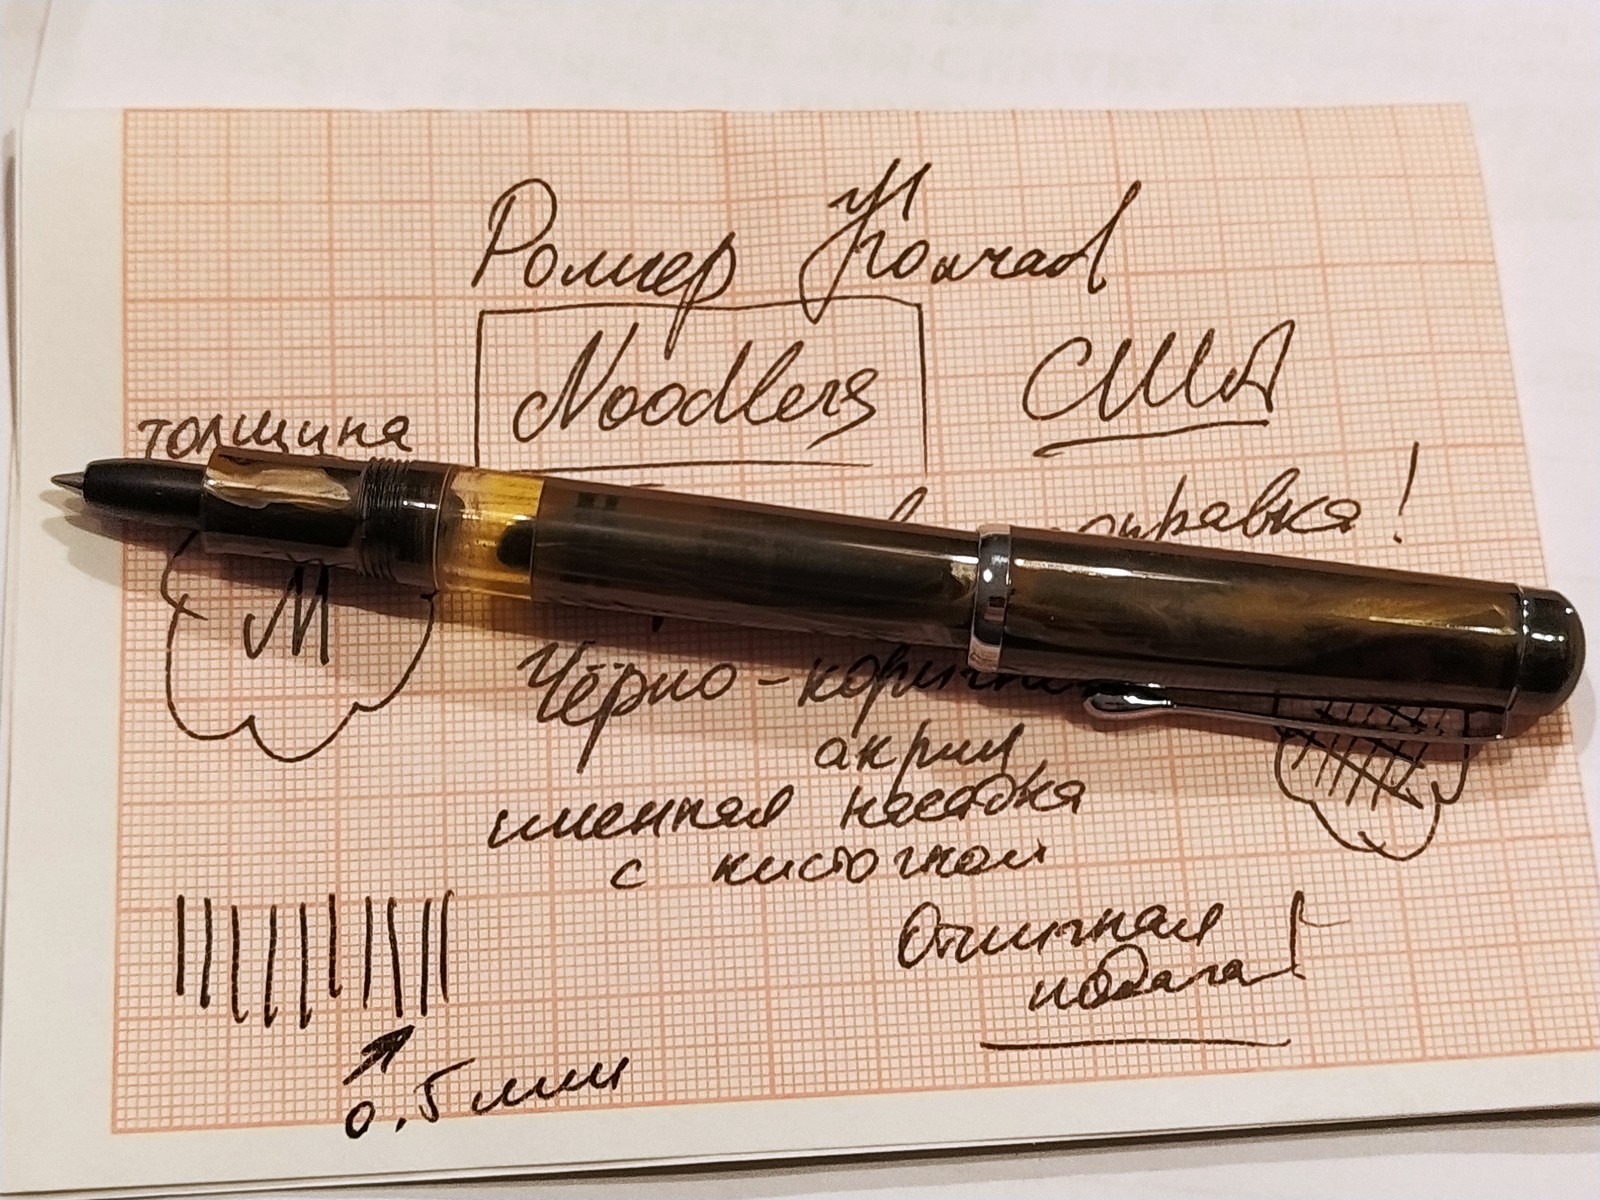 Роллер Кончад
Noodlers США
толщина
оправка!
М
Чёрно-коричнев
акрил
именная насадка
с кисточкой
Отличная
подача!
0.5 мм